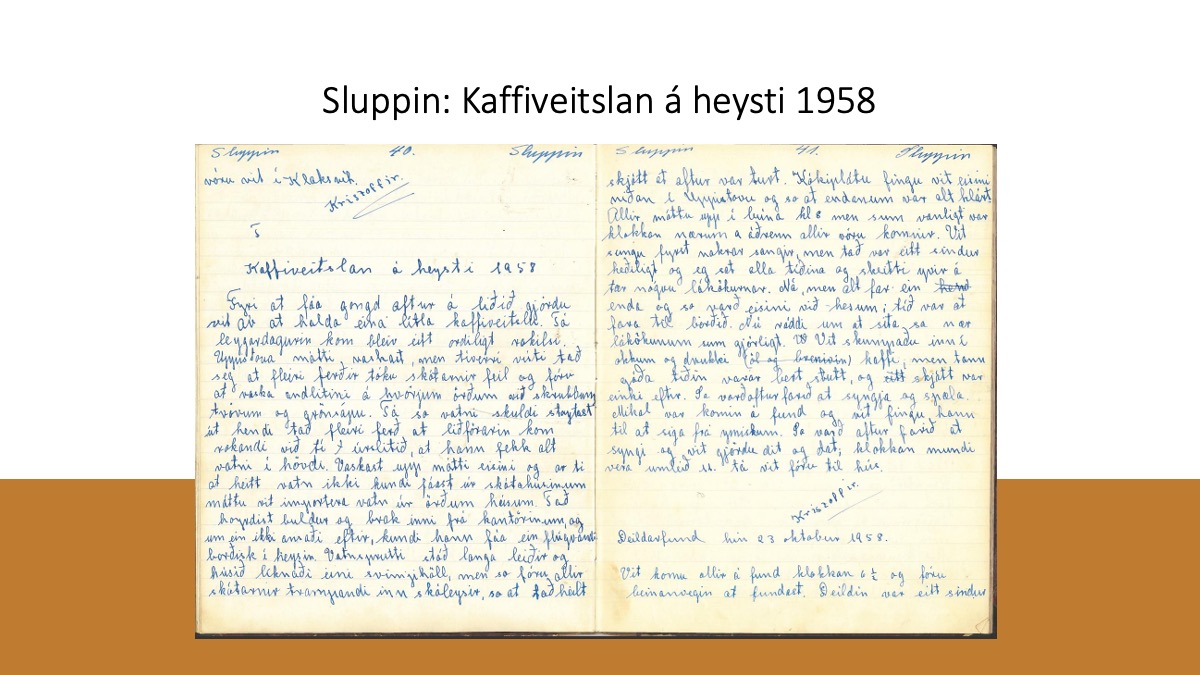 Sluppin: Kaffiveitslan á heysti 1958
Sluppin 40. Sluppin
vóru vit í Klaksvík.
Kriszoppir.
Kaffiveitslan á heysti 1958
Fyri at fáa gongd aftur á liðið gjördu
vit av at halda eina lítla kaffiveitslu. Tá
leygardagurin kom bleiv eitt ordiligt rokilsi.
Uppistova mátti vaskast, men tíverri vísti tað
seg at fleiri ferðir tóku skótarnir feil og fóru
at vaska andlitini á hvörjum öðrum við skrubbum,
tvörum og grönsápu. Tá so vatni skuldi stoytast
út hendi tað fleiri ferð at liðförarin kom
rokandi við tí úrslitið, at hann fekk alt
vatni í hövdi. Vaskast upp mátti eisini og av tí
at heitt vatn ikki kundi fáast úr skótahúsinum
máttu vit importera vatn úr öðrum húsum. Tað
hoyrdist buldur og brak inni frá kantórinum, og
um ein ikki ansaði eftir, kundi hann fáa ein flúgvandi
bordisk á heysin. Vatnsprutti stóð langa leiðir og
húsið líknaði eini svimjihöll, men so fóru allir
skótarnir trampandi inn skóleysir, so at tað heilt
Sluppin 41. Sluppin
skjótt at aftur var turt. Kókiplátu fingu vit eisini
niðan í Uppistovu og so at endanum var alt klárt.
Allir máttu upp í búna kl 8 men sum vanligt var
klokkan nærum 9 áðrenn allir vóru komnir. Vit
sungu fyrst nakrar sangir, men tað var eitt sindur
keðiligt og eg sat alla tíðina og skuitti yvir á
tær nógvu lákökurnar. Ná, men alt fær ein
enda og so varð eisini við hesum; tíð var at
fara til borðið. Nú ráddi um at sita so nær
lákökunum sum gjörligt. Vit skumpaðu inn í
okkum og drukku (öl og brenivín) kaffi, men tann
góða tíðin varar bert stutt, og eitt skjótt var
einki eftir. So varð aftur farið at syngja og spæla.
Mikal var komin á fund og vit fingu hann
til at siga frá ymiskum. So varð aftur farið at
syngj og vit gjördu dit og dat; klokkan mundi
vera umleið 11. tá vit fóru til hús.
Kriszoppir.
Deildarfund hin 23 oktobur 1958.
Vit komu allir á fund klokkan 6 ½ og fóru
beinanvegin at fundast. Deildin var eitt sindur